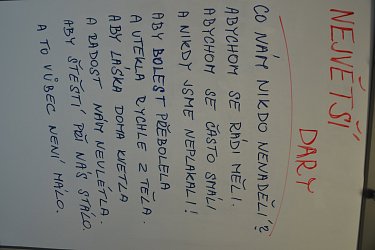 NEJVĚTŠÍ
DARY
CO NÁM NIKDO NENADĚLÍ?
ABYCHOM SE RÁDI MĚLI.
ABYCHOM SE ČASTO SMÁLI
A NIKDY JSME NEPLAKALI!
ABY BOLEST PŘEBOLELA
A UTEKLA RYCHLE Z TĚLA.
ABY LÁSKA DOMA KVETLA
A RADOST NÁM NEULÉTLA.
ABY ŠTĚSTÍ PŘI NÁS STÁLO.
A TO VŮBEC NENÍ MÁLO.